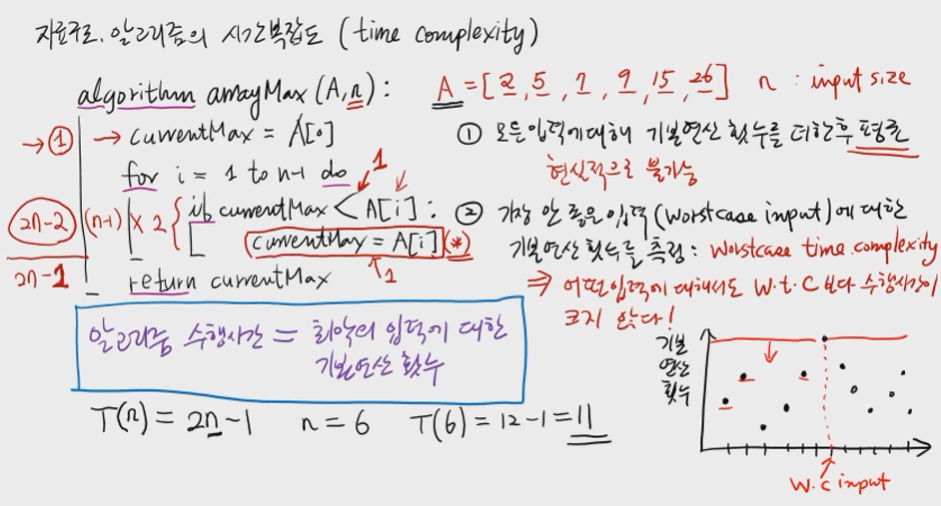 자료구조. 알고리즘의 시간복잡도 (time complexity)
algorithm arrayMax (A, n):
→ ① → currentMax = A[0]
for i = 1 to n-1 do 1
2n-2 (n-1) × 2 { if currentMax < A[i]:
currentMax = A[i] (*)
1
2n-1 return currentMax
알고리즘 수행시간 = 최악의 입력에 대한
기본연산 횟수
T(n) = 2n-1 n = 6 T(6) = 12-1 = 11
A = [2, 5, 7, 9, 15, 26] n : input size
① 모든 입력에 대해 기본연산 횟수를 더한후 평균
현실적으로 불가능
② 가장 안 좋은 입력 (worstcase input)에 대한
기본연산 횟수를 측정 : worstcase time complexity
⇒ 어떤 입력에 대해서도 W.t.C보다 수행시간이
크지 않다!
기본
연산
횟수
W.C input